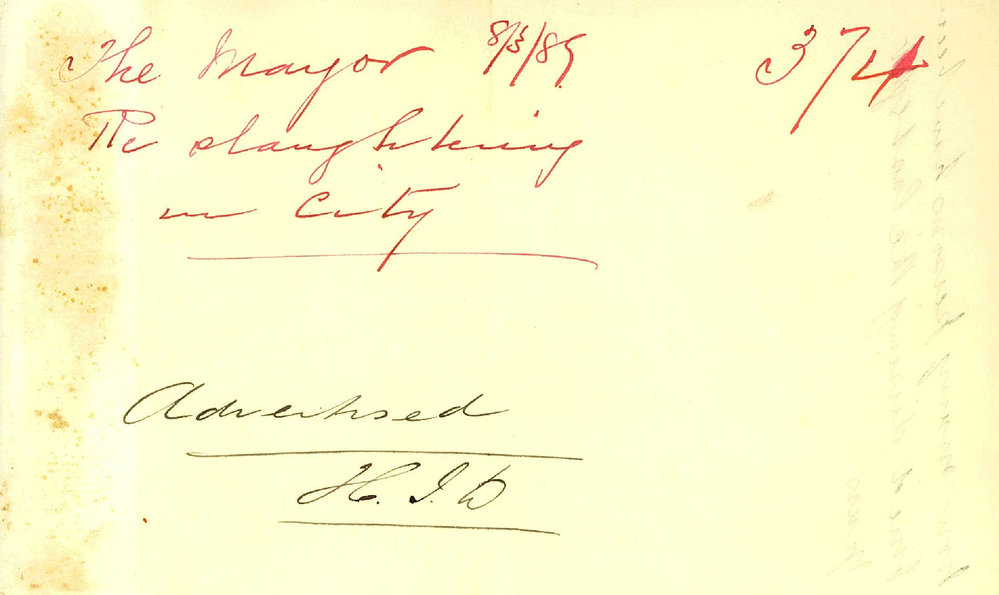 The Mayor 8/3/89. 374
Re slaughtering
in City
Advertised
H. J. D